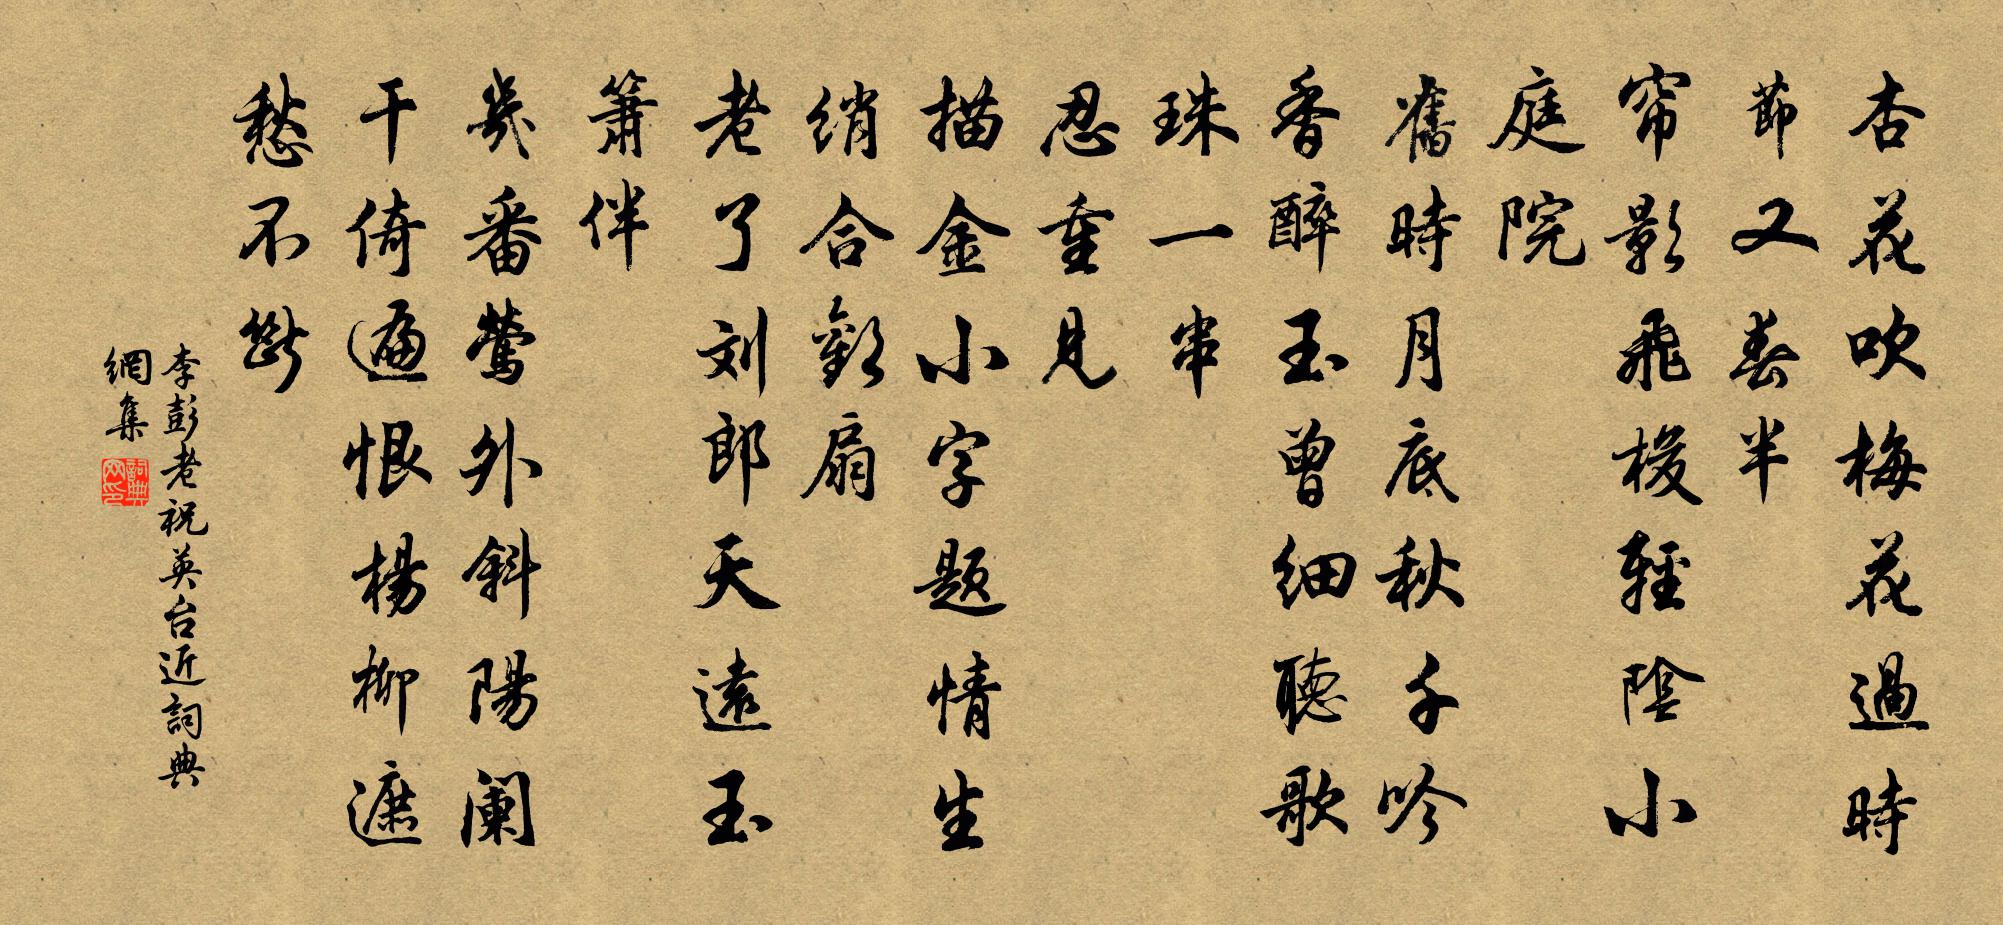 杏花吹梅花過時
節又春半
帘影飛梭輕陰小
庭院
舊時月底秋千吟
香醉玉曾細聽歌
珠一串
忍重見
描金小字题情生
绡合歡扇
老了刘郎天遠玉
簫伴
幾番鶯外斜陽闌
干倚遍恨楊柳遮
愁不斷
李彭老祝英台近詞典
網集
詞典
网印